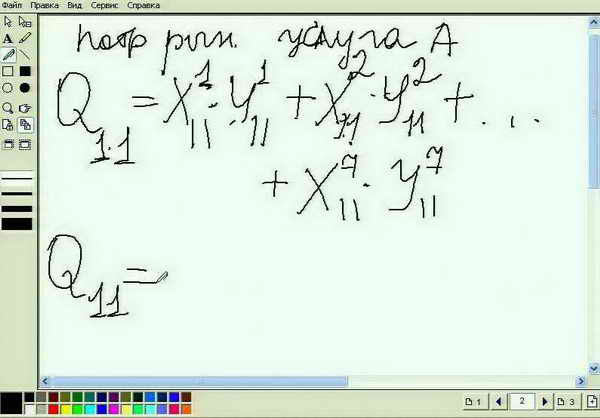 Файл Правка Вид Сервис Справка
потр рын. услуга А
Q₁.₁ = X¹₁₁ · Y¹₁₁ + X²₁₁ · Y²₁₁ + . . .
+ X⁷₁₁ · Y⁷₁₁
Q₁₁ =
1 2 3